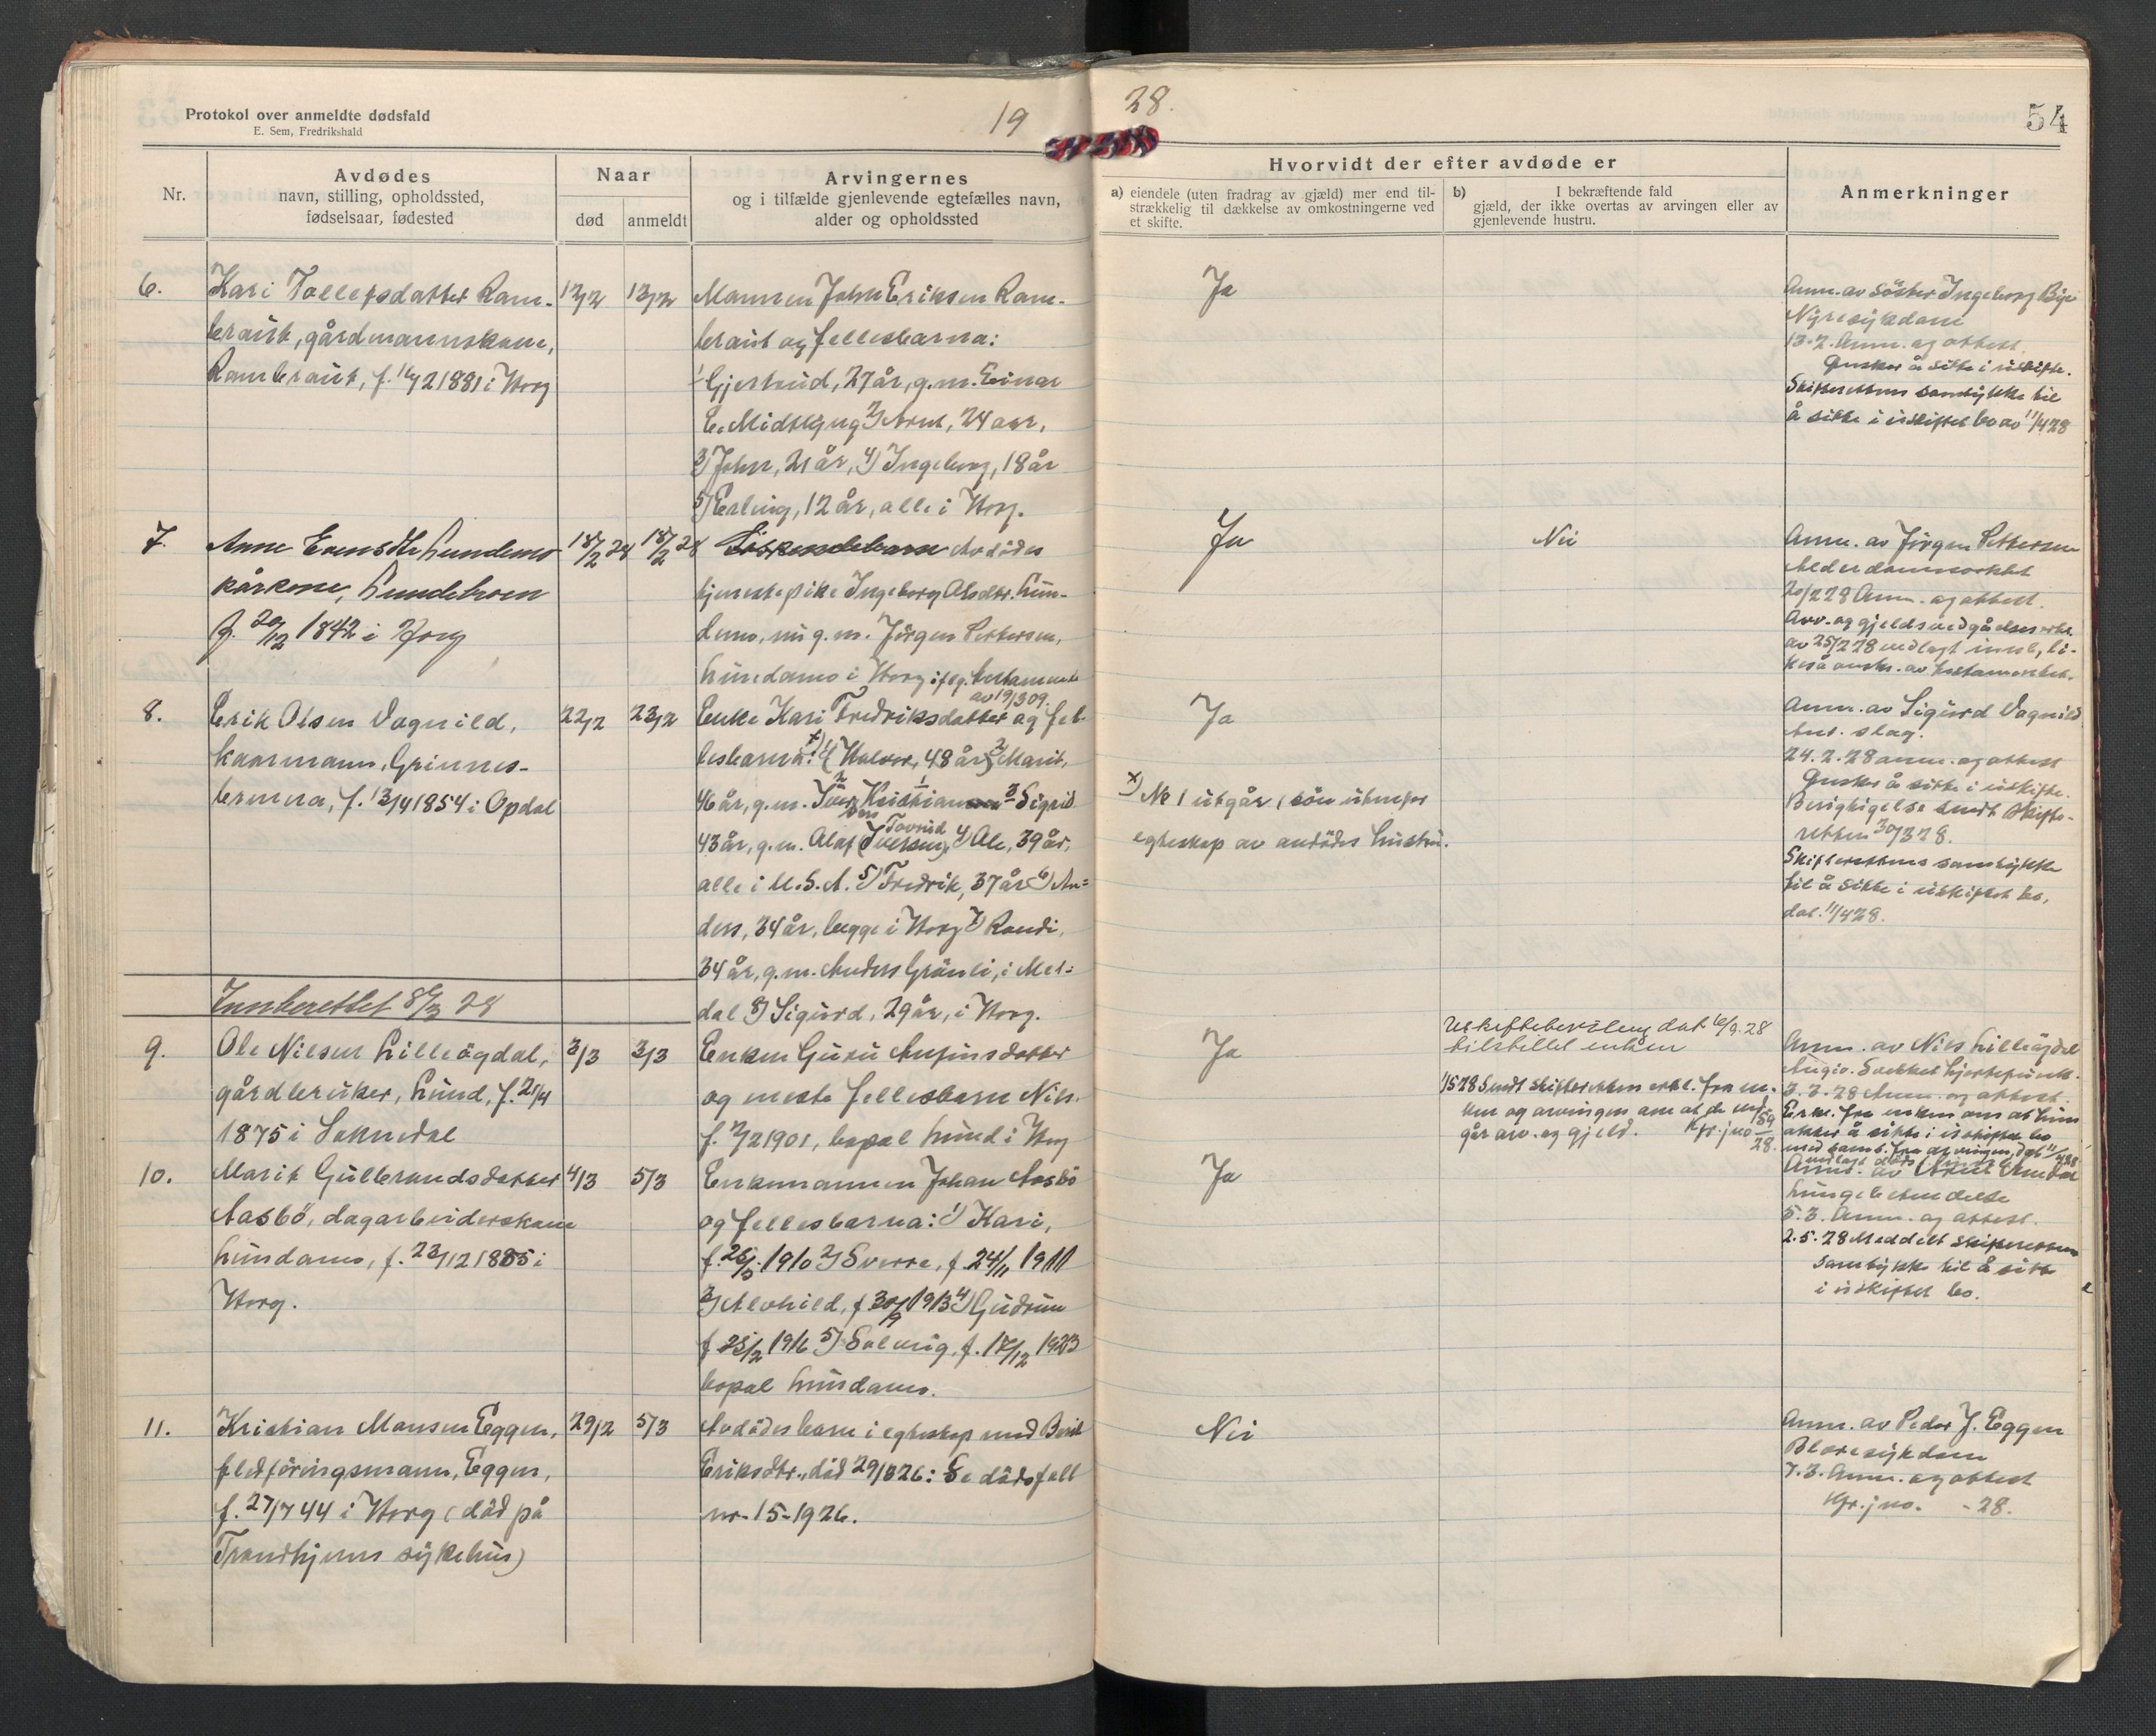 Protokol over anmeldte dødsfald
E. Sem, Fredrikshald
19 28.
54
Nr.
Avdødes
navn, stilling, opholdssted,
fødselsaar, fødested
Naar
død
anmeldt
Arvingernes
og i tilfælde gjenlevende egtefælles navn,
alder og opholdssted
Hvorvidt der efter avdøde er
a) eiendele (uten fradrag av gjæld) mer end til-
strækkelig til dækkelse av omkostningerne ved
et skifte.
b) I bekræftende fald
gjæld, der ikke overtas av arvingen eller av
gjenlevende hustru.
Anmerkninger
6.
Kari Tollefsdatter Ram-
braut, gårdmannskone,
Rambraut, f. 1881 i Horg
12/2
13/2
Mannen John Eriksen Ram-
braut og fellesbarna:
1) Gjertrud, 27 år, g.m. Einar
E. Midtlyng 2) Arnt, 24 aar,
3) John, 21 år, 4) Ingeborg, 18 år
5) Erling, 12 år, alle i Horg.
Ja
Anm. av søster Ingeborg Bye
Nyresykdom
13-2. Anm. og attest
Ønsker å sitte i uskifte.
Skifterettens samtykke til
å sitte i uskiftet bo av 11/4 28
7.
Anne Evensdtr Lundemo
kårkone, Lundemoen
f. 20/12 1842 i Horg
18/2 28
18/2 28
Søskendebarn Avdødes
tjenestepike Ingeborg Olsdtr. Lun-
demo, nu g.m. Jørgen Pettersen,
Lundamo i Horg ifølg. testamente
av 19/3 09.
Ja
Nei
Anm. av Jørgen Pettersen
Alderdomssvakhet
20/2 28 Anm. og attest.
Arv. og gjeldsvedgåelseserkl.
av 25/2 28 vedlagt innsb., li-
8.
Erik Olsen Vognild,
kaarmann, Grinnes-
bruna, f. 13/4 1854 i Opdal
22/2
23/2
Enke Kari Fredriksdatter og fel-
lesbarna: x) 1) Halvor, 48 år 2) Marit,
46 år, g.m. Iver Kristiansen 3) Sigrid
43 år, g.m. Olaf (Iversen) Tovrud 4) Ole, 39 år,
alle i U.S.A. 5) Fredrik, 37 år 6) An-
ders, 34 år, begge i Horg 7) Randi,
34 år, g.m. Anders Grønli, i Mel-
dal 8) Sigurd, 29 år, i Horg.
Ja
x) No 1 utgår, (søn utenfor
egteskap av avdødes hustru.
Anm. av Sigurd Vognild
Ant. slag.
24.2.28 anm. og attest
Ønsker å sitte i uskifte.
Berigtigelse sendt skifte-
retten 30/3 28.
Skifterettens samtykke
til å sitte i uskiftet bo,
dat. 11/4 28.
Innberettet 8/3 28
9.
Ole Nilsen Lilleøgdal,
gårdbruker, Lund, f. 21/4
1875 i Soknedal
3/3
3/3
Enken Guru Anfinsdatter
og eneste fellesbarn Nils.
f. 1901, bopel Lund i Horg
Ja
Uskiftebevilling dat. 10/9.28
tilstillet enken
1/5 28 Sendt skifteretten erkl. fra en-
ken og arvingen om at de ved-
går arv. og gjeld. Kfr. jno 159/28.
Anm. av Nils Lilleøgdal
Angiv. Svekket hjertefunk.
3.3-28 Anm. og attest.
Erkl. fra enken om at hun
akter å sitte i uskiftet bo
med samt. fra arvingen, dat. 11/4 28
10.
Marit Gulbrandsdatter
Aasbø, dagarbeiderskone
Lundamo, f. 23/12 1885 i
Horg.
4/3
5/3
Enkemannen Johan Aasbø
og fellesbarna: 1) Kari,
f. 26/3. 1910 2) Sverre, f. 24/11 1911
3) Alvhild, f. 30/9 1913 4) Gudrun
f. 25/2 1916 5) Solveig, f. 17/12 1923
bopæl Lundamo.
Ja
Lungebetendelse
5.3. Anm. og attest.
2.5.28 Meddelt skifterettens
samtykke til å sitte
i uskiftet bo.
11.
Kristian Monsen Eggen,
fledføringsmann, Eggen,
f. 27/7 44 i Horg (død på
Trondhjems sykehus)
29/2
5/3
Avdødes barn i egteskap med Berit
Eriksdtr., død 29/8 26: Se dødsfall
nr. 15-1926.
Nei
Anm. av Peder J. Eggen
Blæresykdom
7.3. Anm. og attest
Kfr. jno. -28.